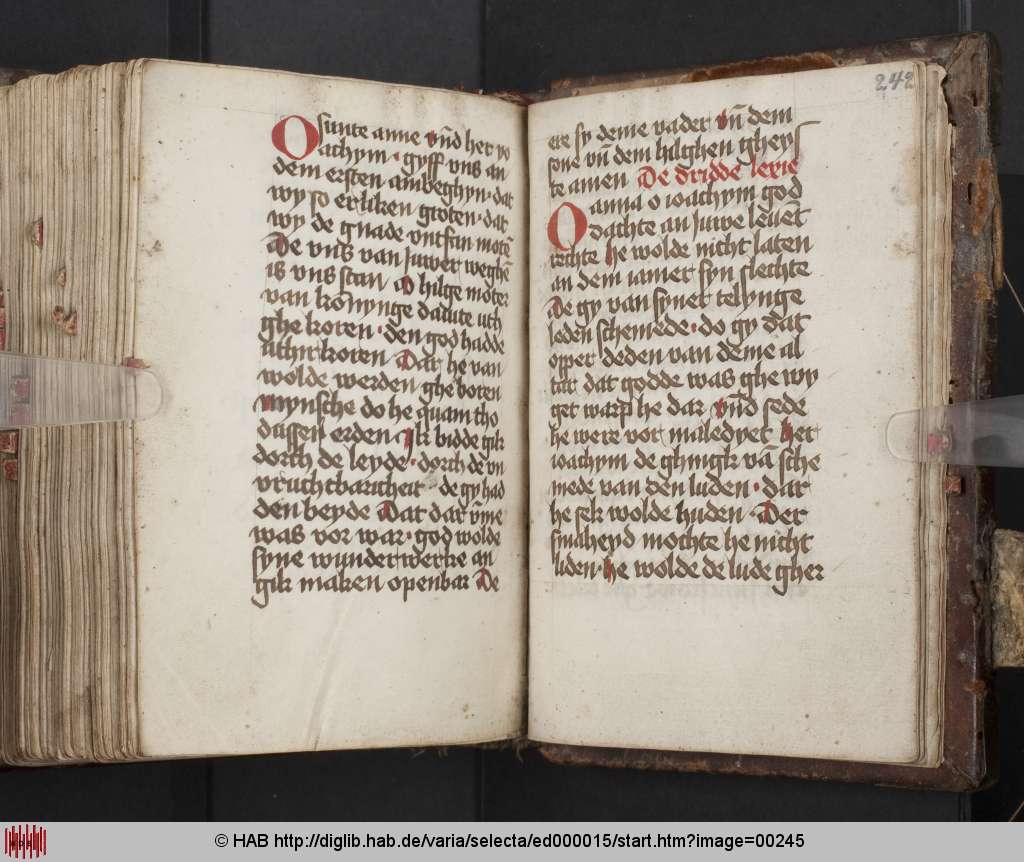 O sunte anne vn̄d her yo
achym · gyff vns an
dem ersten ambeghyn · dat
wy so erliken groten · dat
wy de gnade vntfan motē
De vns van juwer weghē
is vns stan O hilge moter
van konynge dauite uth
ghe koren · den god hadde
uthir koren Dat he van
wolde werden ghe boren
mynsche do he quam tho
dussen erden Ik bidde gik
dorch de leyde · dorch de vn
vruchtbaricheit de gy had
den beyde Dat dar v̄me
was vor war · god wolde
syne wunder werke an
gik maken openbar De
242
ere sy deme vader vn̄ dem
sone vn̄ dem hilghen gheys
te amen De dridde lexie
O anna o ioachym god
dachte an juwe leuēt
rechte he wolde nicht laten
an dem iamer syn slechte
De gy van syner telynge
leden schemede · do gy dat
opper deden van deme al
tar dat godde was ghe wy
get warp he dar vn̄d sede
he were vor maledyet her
ioachym de ghingk vā sche
mede van den luden · dar
he sek wolde huden · Der
smaheyd mochte he nicht
liden · he wolde de lude gher
© HAB http://diglib.hab.de/varia/selecta/ed000015/start.htm?image=00245